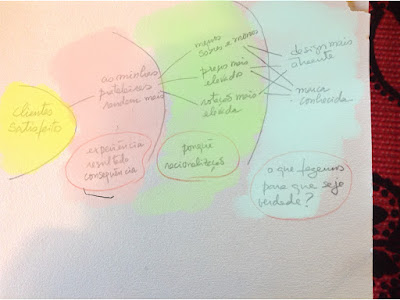 clientes
satisfeitos
as minhas
prateleiras
rendem mais
experiência
resultado
consequência
menos
sobras e monos
preços mais
elevados
rotação mais
elevada
porquê
racionalização
design mais
atraente
marca
conhecida
o que fazemos
para que seja
verdade?